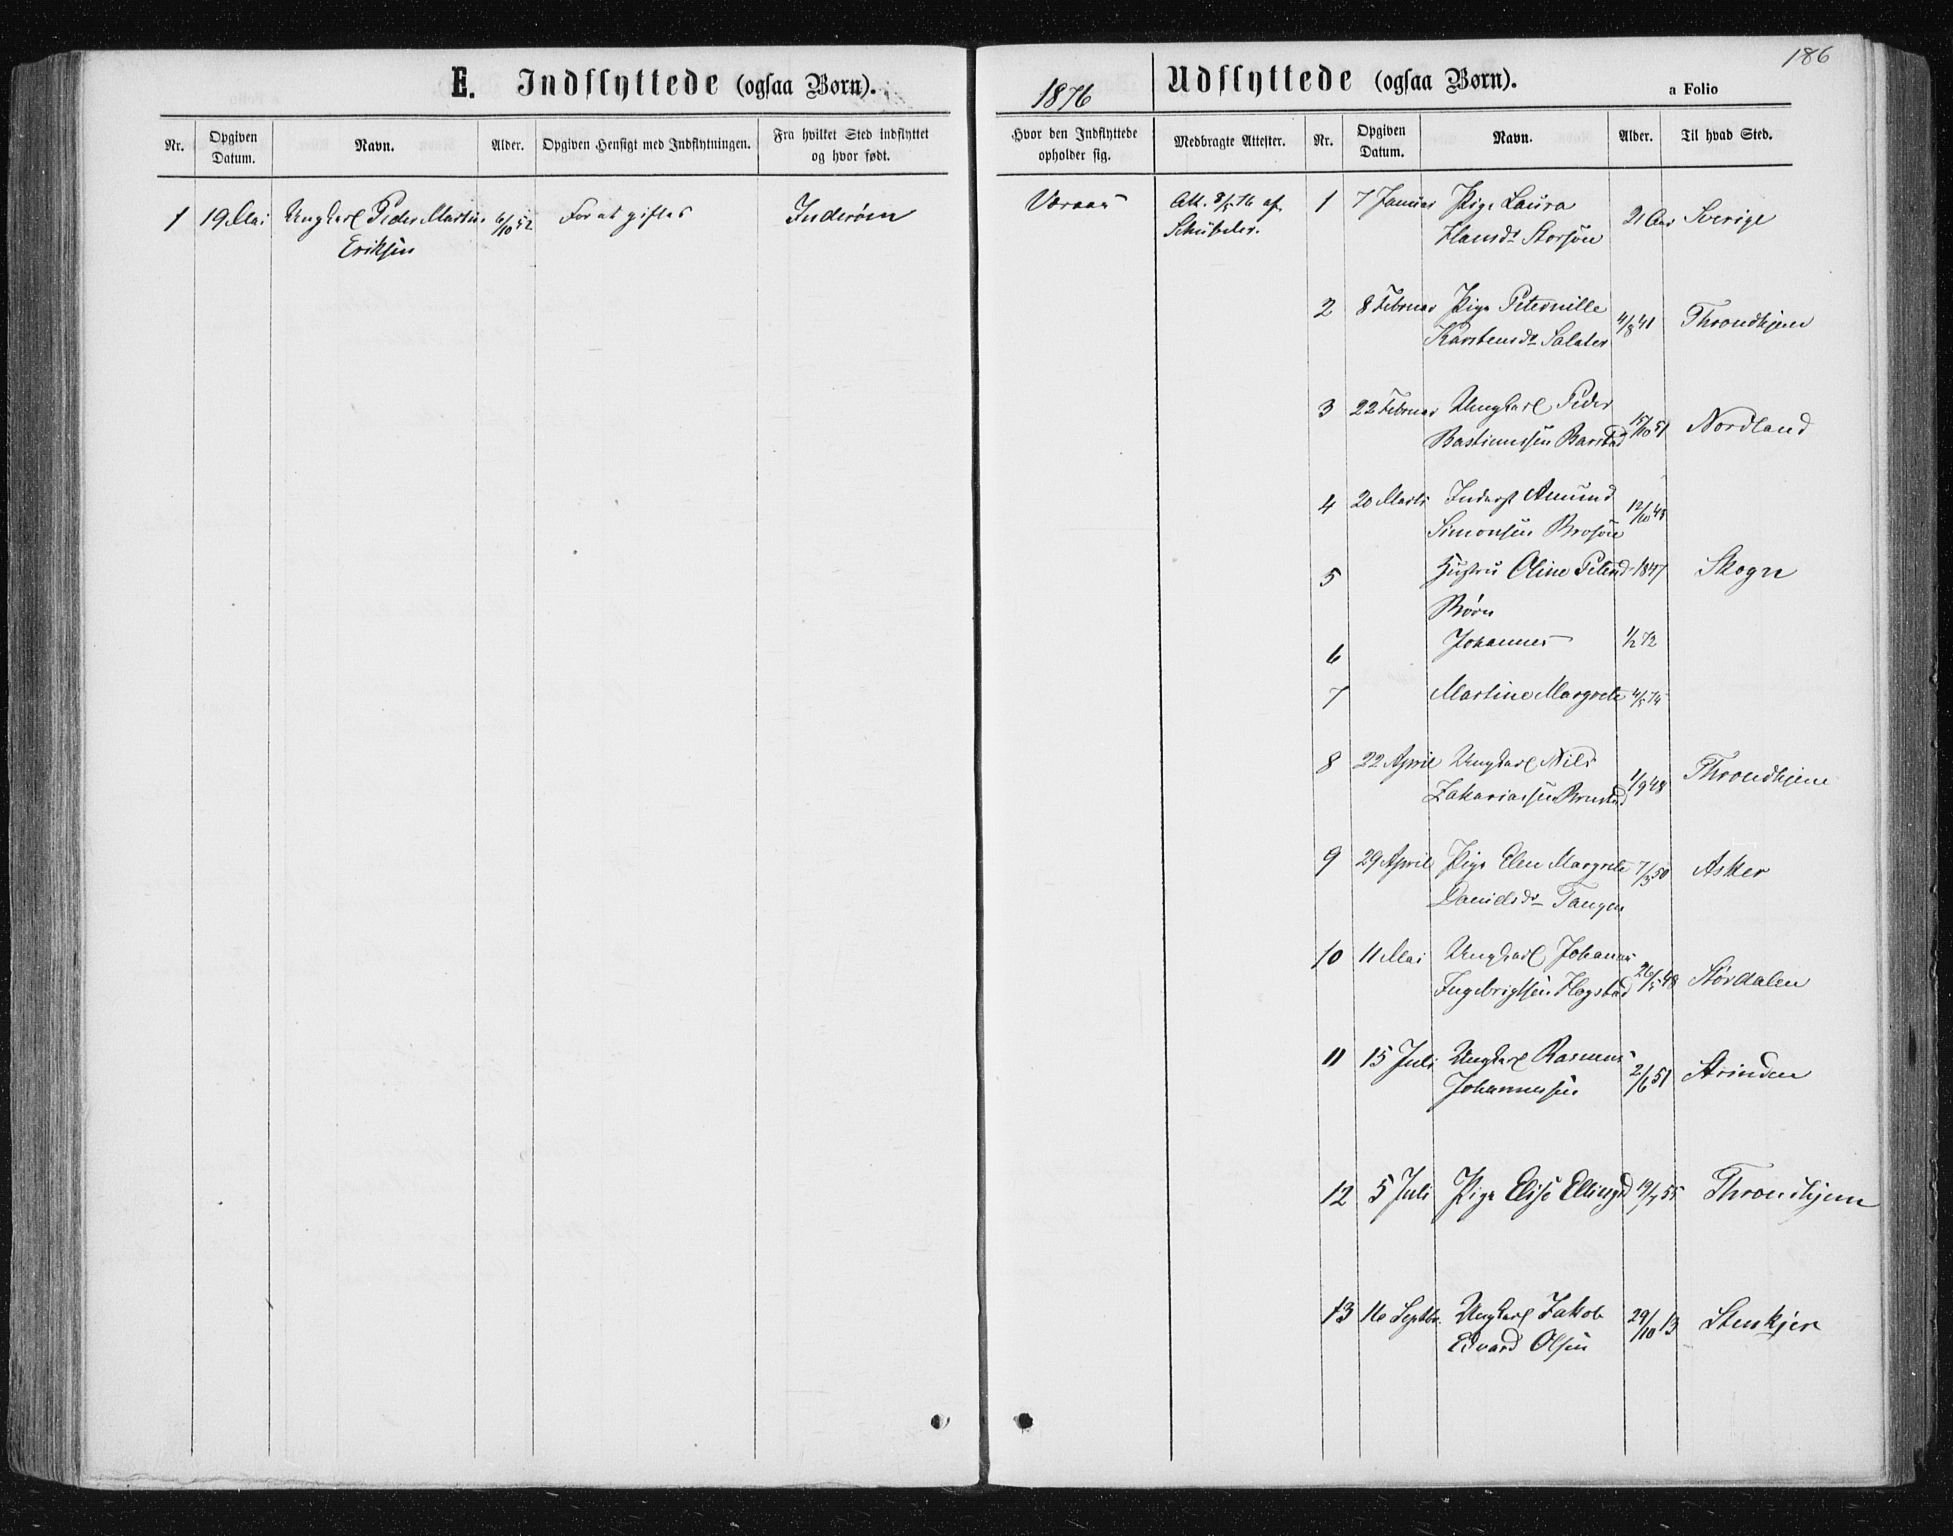 186
E. Indflyttede (ogsaa Børn).
1876
Udflyttede (ogsaa Børn).
a Folio
Nr.
Opgiven Datum.
Navn.
Alder.
Opgiven Hensigt med Indflytningen.
Fra hvilket Sted indflyttet og hvor født.
Hvor den Indflyttede opholder sig.
Medbragte Attester.
Nr.
Opgiven Datum.
Navn.
Alder.
Til hvad Sted.
1 19 Mai Ungkarl Peder Martin 6/10 52 For at giftes Inderøen Væraas Att. 8/5 76 af
Eriksen Schübeler.
1 7 Januar Pige Laura 21 Aar Sverige
Hansdr Storsøen
2 8 Februar Pige Peternille 4/8 41 Throndhjem
Karstensdr Salater
3 22 Februar Ungkarl Peder 15/10 51 Nordland
Bastiansen Barstad
4 20 Marts Inderst Amund 12/10 48
Simonsen Brosøen
5 Hustru Oline Petersd 1847 Skogn
Børn
6 Johannes 1/2 72
7 Martine Margrete 4/5 74
8 22 April Ungkarl Nils 1/9 48 Throndhjem
Zakariassen
9 29 April Pige Elen Margrete 7/3 50 Asker
Danielsdr Tangen
10 11 Mai Ungkarl Johannes 26/5 48 Størdalen
Ingebrigtsen Hogstad
11 15 Juli Ungkarl Rasmus 2/6 51 Strinden
Johannessen
12 5 Juli Pige Elise Ellingsd 19/7 55 Throndhjem
13 16 Septbr. Ungkarl Jakob 29/10 13 Stenkjer
Edvard Olsen